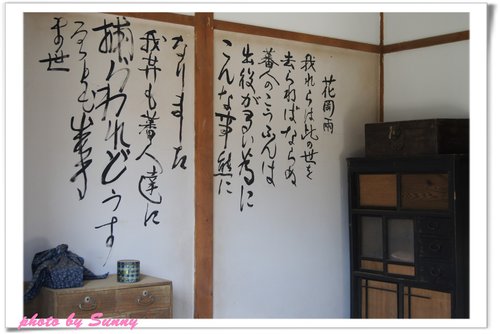 花岡両
我れらは此の世を
去らねばならぬ
蕃人のこうふんは
出役が多い為に
こんな事態に
なりました
我等も蕃人達に
捕らわれどうす
ることも出来
ま世
photo by Sunny